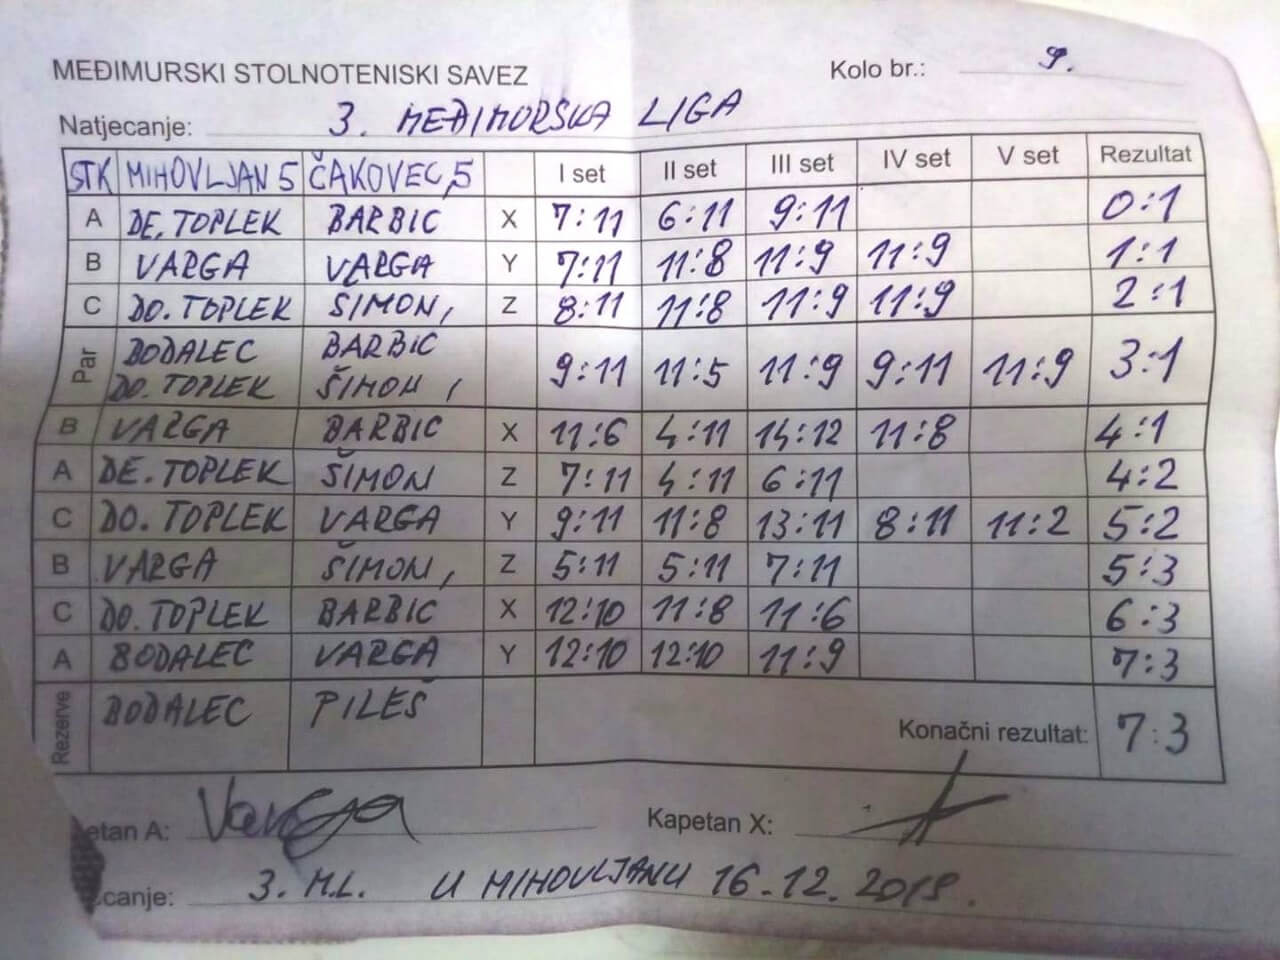 MEĐIMURSKI STOLNOTENISKI SAVEZ Kolo br.: 9.
Natjecanje: 3. MEĐIMORSKA LIGA
STK MIHOVLJAN 5 ČAKOVEC, 5 I set II set III set IV set V set Rezultat
A DE. TOPLEK BARBIC X 7:11 6:11 9:11 0:1
B VARGA VARGA Y 7:11 11:8 11:9 11:9 1:1
C DO. TOPLEK ŠIMON, Z 8:11 11:8 11:9 11:9 2:1
Par BODALEC BARBIC 9:11 11:5 11:9 9:11 11:9 3:1
DO. TOPLEK ŠIMON,
B VARGA BARBIC X 11:6 4:11 14:12 11:8 4:1
A DE. TOPLEK ŠIMON Z 7:11 4:11 6:11 4:2
C DO. TOPLEK VARGA Y 9:11 11:8 13:11 8:11 11:2 5:2
B VARGA ŠIMON, Z 5:11 5:11 7:11 5:3
C DO. TOPLEK BARBIC X 12:10 11:8 11:6 6:3
A BODALEC VARGA Y 12:10 12:10 11:9 7:3
Rezerve BODALEC PILEŠ Konačni rezultat: 7:3
etan A: Varga Kapetan X:
canje: 3. M.L. U MIHOVLJANU 16.12.2019.